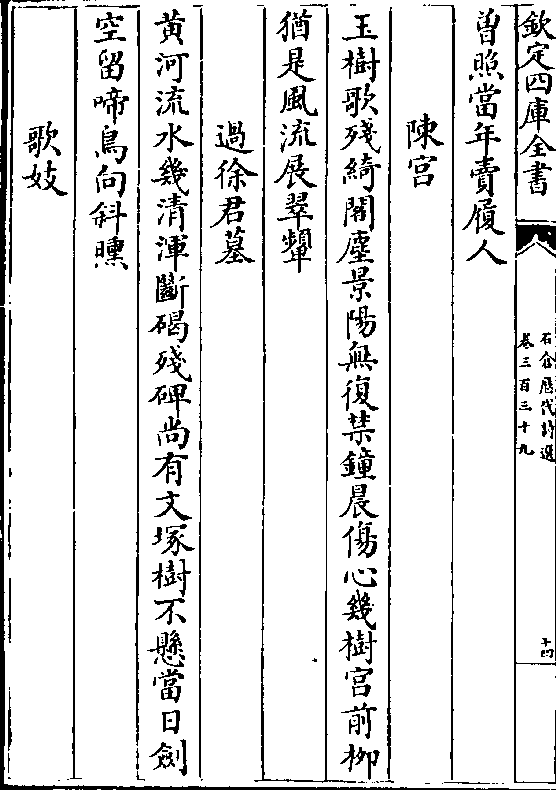 欽定四庫全書
石倉歷代詩選
卷三百三十九
十四
曽照當年賣履人
陳宫
玉樹歌殘綺閣塵景陽無復禁鐘晨傷心幾樹宫前柳
猶是風流展翠顰
過徐君墓
黄河流水幾清渾斷碣殘碑尚有文塚樹不懸當日劍
空留啼鳥向斜曛
歌妓